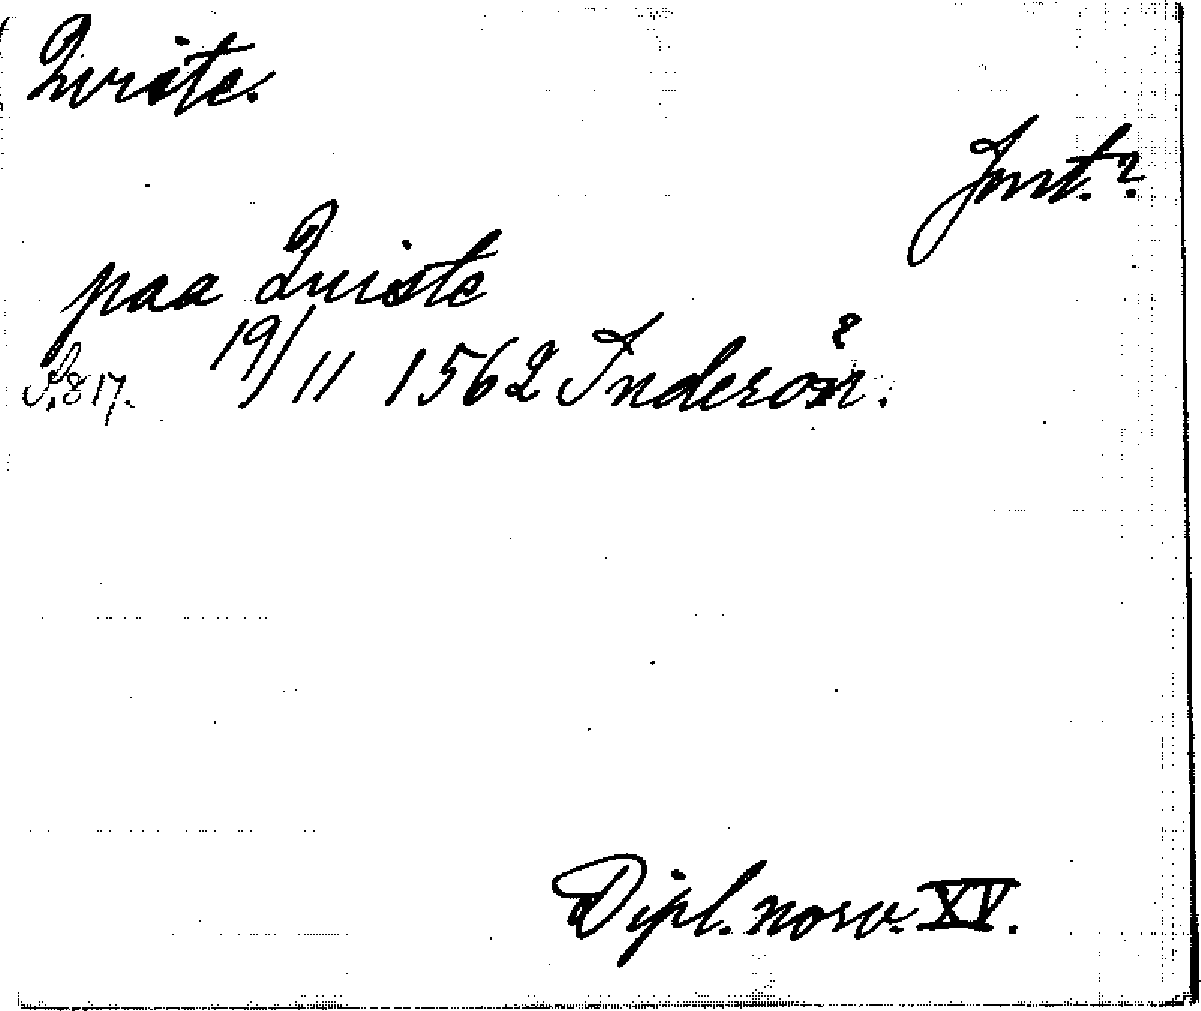 Qviste.
Jmt.?
paa Quiste
S. 817. 19/11 1562 Inderøn.
Dipl. norv. XV.